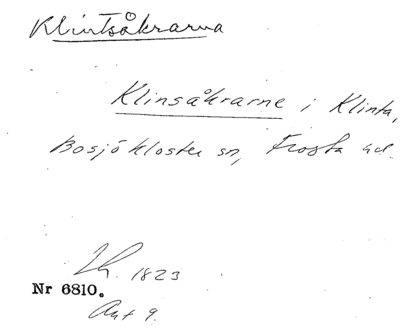 Klintsåkrarna
Klinsåkrarne i Klinta,
Bosjökloster sn, Frosta hd.
Lh. 1823
Nr 6810.
Akt 9.